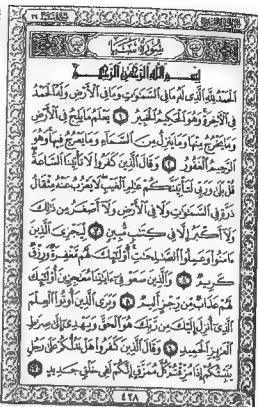 سُورَةُ سَبَإٍ
بِسْمِ اللَّهِ الرَّحْمَٰنِ الرَّحِيمِ
الْحَمْدُ لِلَّهِ الَّذِي لَهُ مَا فِي السَّمَاوَاتِ وَمَا فِي الْأَرْضِ وَلَهُ الْحَمْدُ
فِي الْآخِرَةِ وَهُوَ الْحَكِيمُ الْخَبِيرُ ١ يَعْلَمُ مَا يَلِجُ فِي الْأَرْضِ
وَمَا يَخْرُجُ مِنْهَا وَمَا يَنزِلُ مِنَ السَّمَاءِ وَمَا يَعْرُجُ فِيهَا وَهُوَ
الرَّحِيمُ الْغَفُورُ ٢ وَقَالَ الَّذِينَ كَفَرُوا لَا تَأْتِينَا السَّاعَةُ
قُلْ بَلَىٰ وَرَبِّي لَتَأْتِيَنَّكُمْ عَالِمِ الْغَيْبِ لَا يَعْزُبُ عَنْهُ مِثْقَالُ
ذَرَّةٍ فِي السَّمَاوَاتِ وَلَا فِي الْأَرْضِ وَلَا أَصْغَرُ مِن ذَٰلِكَ
وَلَا أَكْبَرُ إِلَّا فِي كِتَابٍ مُّبِينٍ ٣ لِّيَجْزِيَ الَّذِينَ
آمَنُوا وَعَمِلُوا الصَّالِحَاتِ أُولَٰئِكَ لَهُم مَّغْفِرَةٌ وَرِزْقٌ
كَرِيمٌ ٤ وَالَّذِينَ سَعَوْ فِي آيَاتِنَا مُعَاجِزِينَ أُولَٰئِكَ
لَهُمْ عَذَابٌ مِّن رِّجْزٍ أَلِيمٌ ٥ وَيَرَى الَّذِينَ أُوتُوا الْعِلْمَ
الَّذِي أُنزِلَ إِلَيْكَ مِن رَّبِّكَ هُوَ الْحَقَّ وَيَهْدِي إِلَىٰ صِرَاطِ
الْعَزِيزِ الْحَمِيدِ ٦ وَقَالَ الَّذِينَ كَفَرُوا هَلْ نَدُلُّكُمْ عَلَىٰ رَجُلٍ
يُنَبِّئُكُمْ إِذَا مُزِّقْتُمْ كُلَّ مُمَزَّقٍ إِنَّكُمْ لَفِي خَلْقٍ جَدِيدٍ ٧
٤٢٨